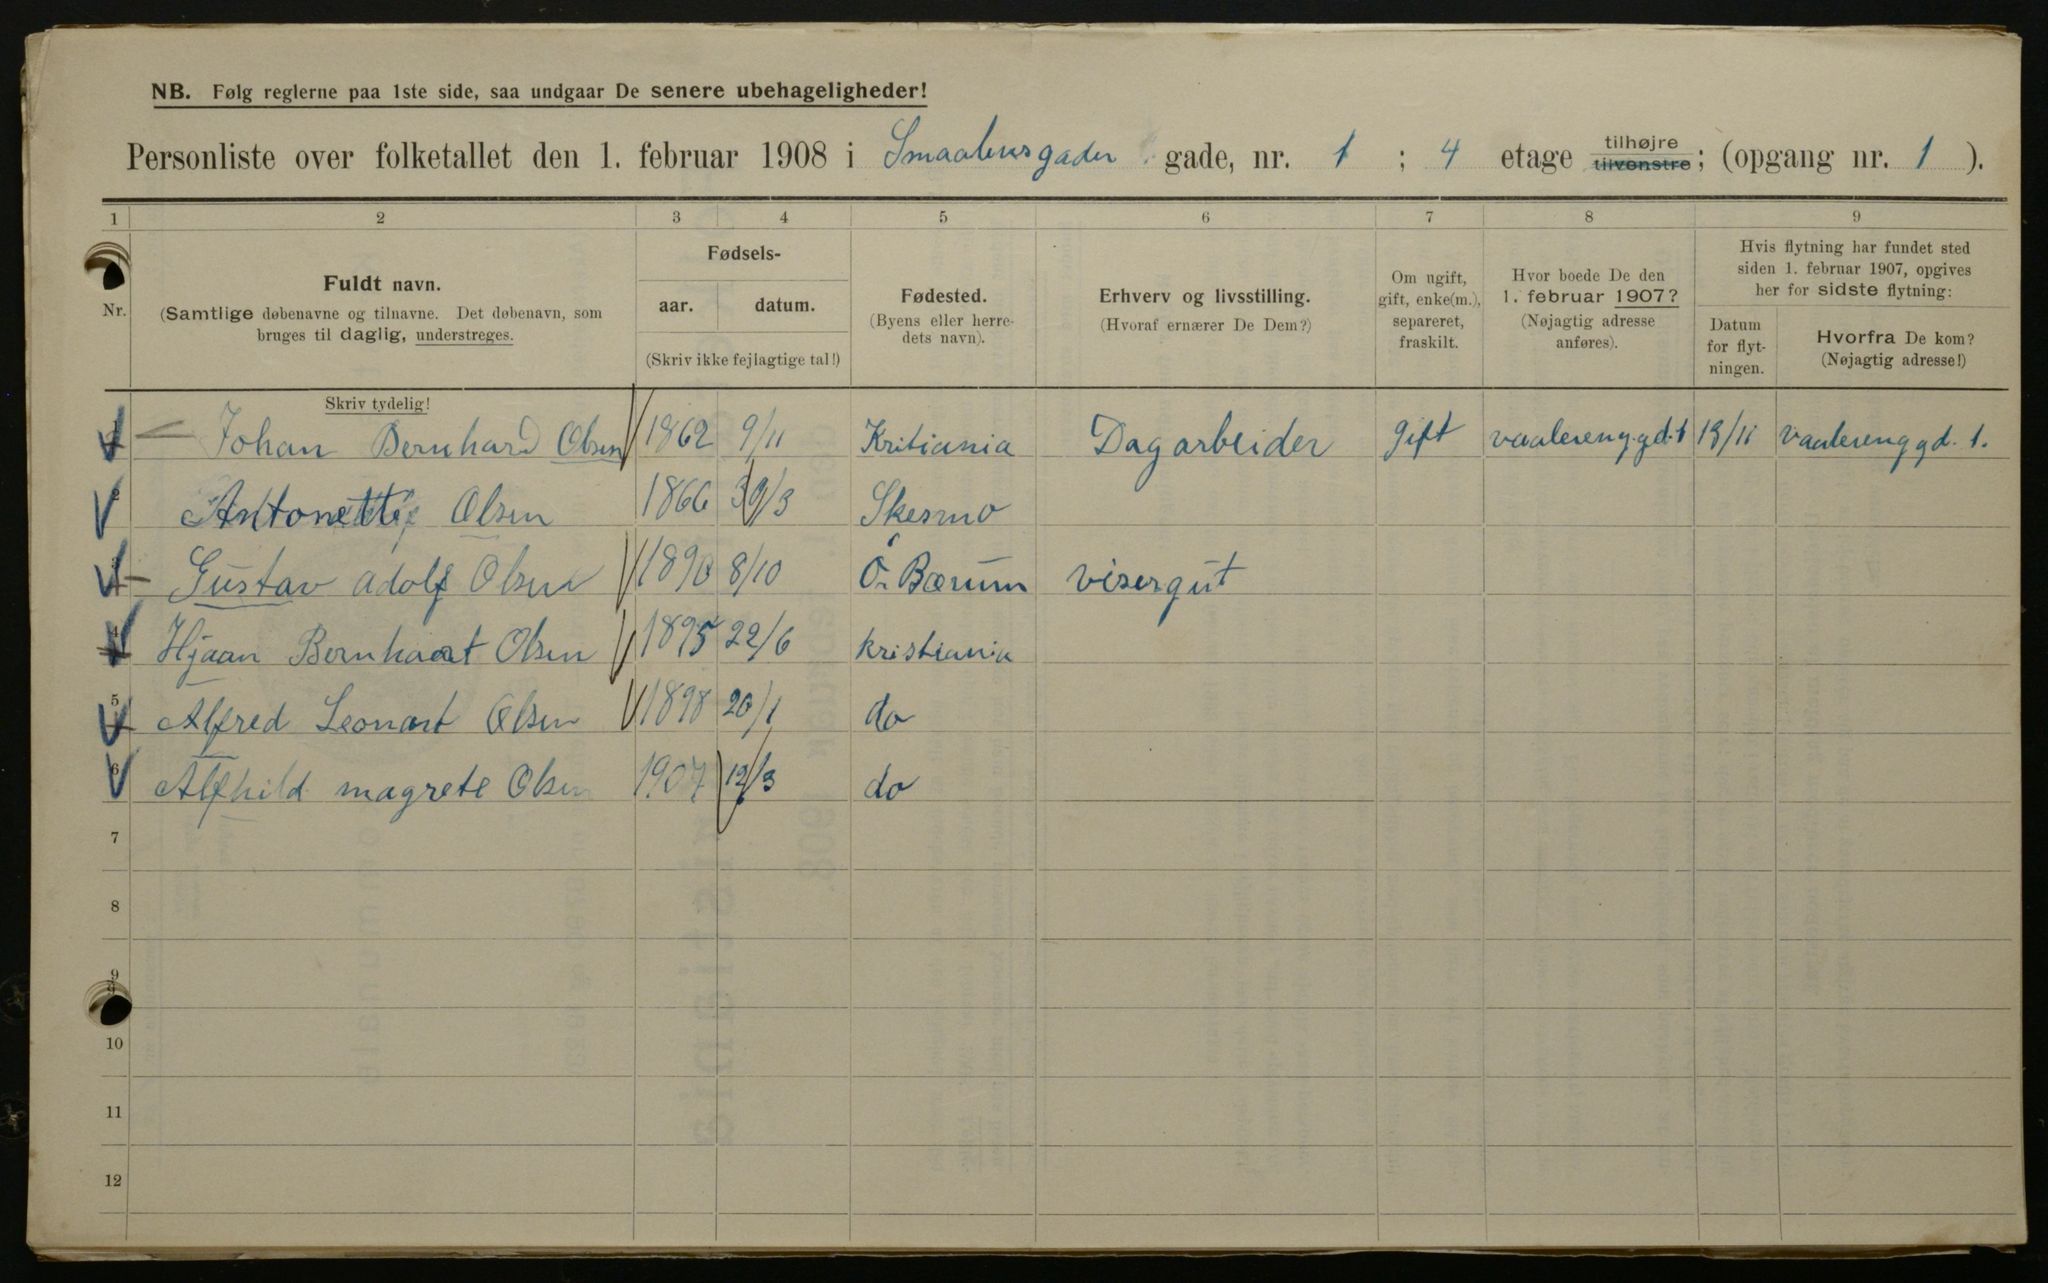 NB. Følg reglerne paa 1ste side, saa undgaar De senere ubehageligheder!
Personliste over folketallet den 1. februar 1908 i Smaalensgaden gade, nr. 1 ; 4 etage tilhøjre tilvenstre; (opgang nr. 1 ).
1 2 3 4 5 6 7 8 9
Nr.
Fuldt navn.
(Samtlige døbenavne og tilnavne. Det døbenavn, som
bruges til daglig, understreges.
Fødsels-
aar. datum.
(Skriv ikke fejlagtige tal!)
Fødested.
(Byens eller herre-
dets navn).
Erhverv og livsstilling.
(Hvoraf ernærer De Dem?)
Om ugift,
gift, enke(m.),
separeret,
fraskilt.
Hvor boede De den
1. februar 1907?
(Nøjagtig adresse
anføres).
Hvis flytning har fundet sted
siden 1. februar 1907, opgives
her for sidste flytning:
Datum
for flyt-
ningen.
Hvorfra De kom?
(Nøjagtig adresse!)
Skriv tydelig!
1 Johan Bernhard Olsen 1862 9/11 Kritiania Dagarbeider gift vaalereng.gd.1 13/11 vaalerenggd. 1.
2 Antonette Olsen 1866 30/3 Skesmo
3 Gustav adolf Olsen 1890 8/10 Ö. Bærum visergut
4 Hjaan Bernhart Olsen 1895 22/6 kristiania
5 Alfred Leonart Olsen 1898 20/1 do
6 Alfhild magrete Olsen 1907 12/3 do
7
8
9
10
11
12